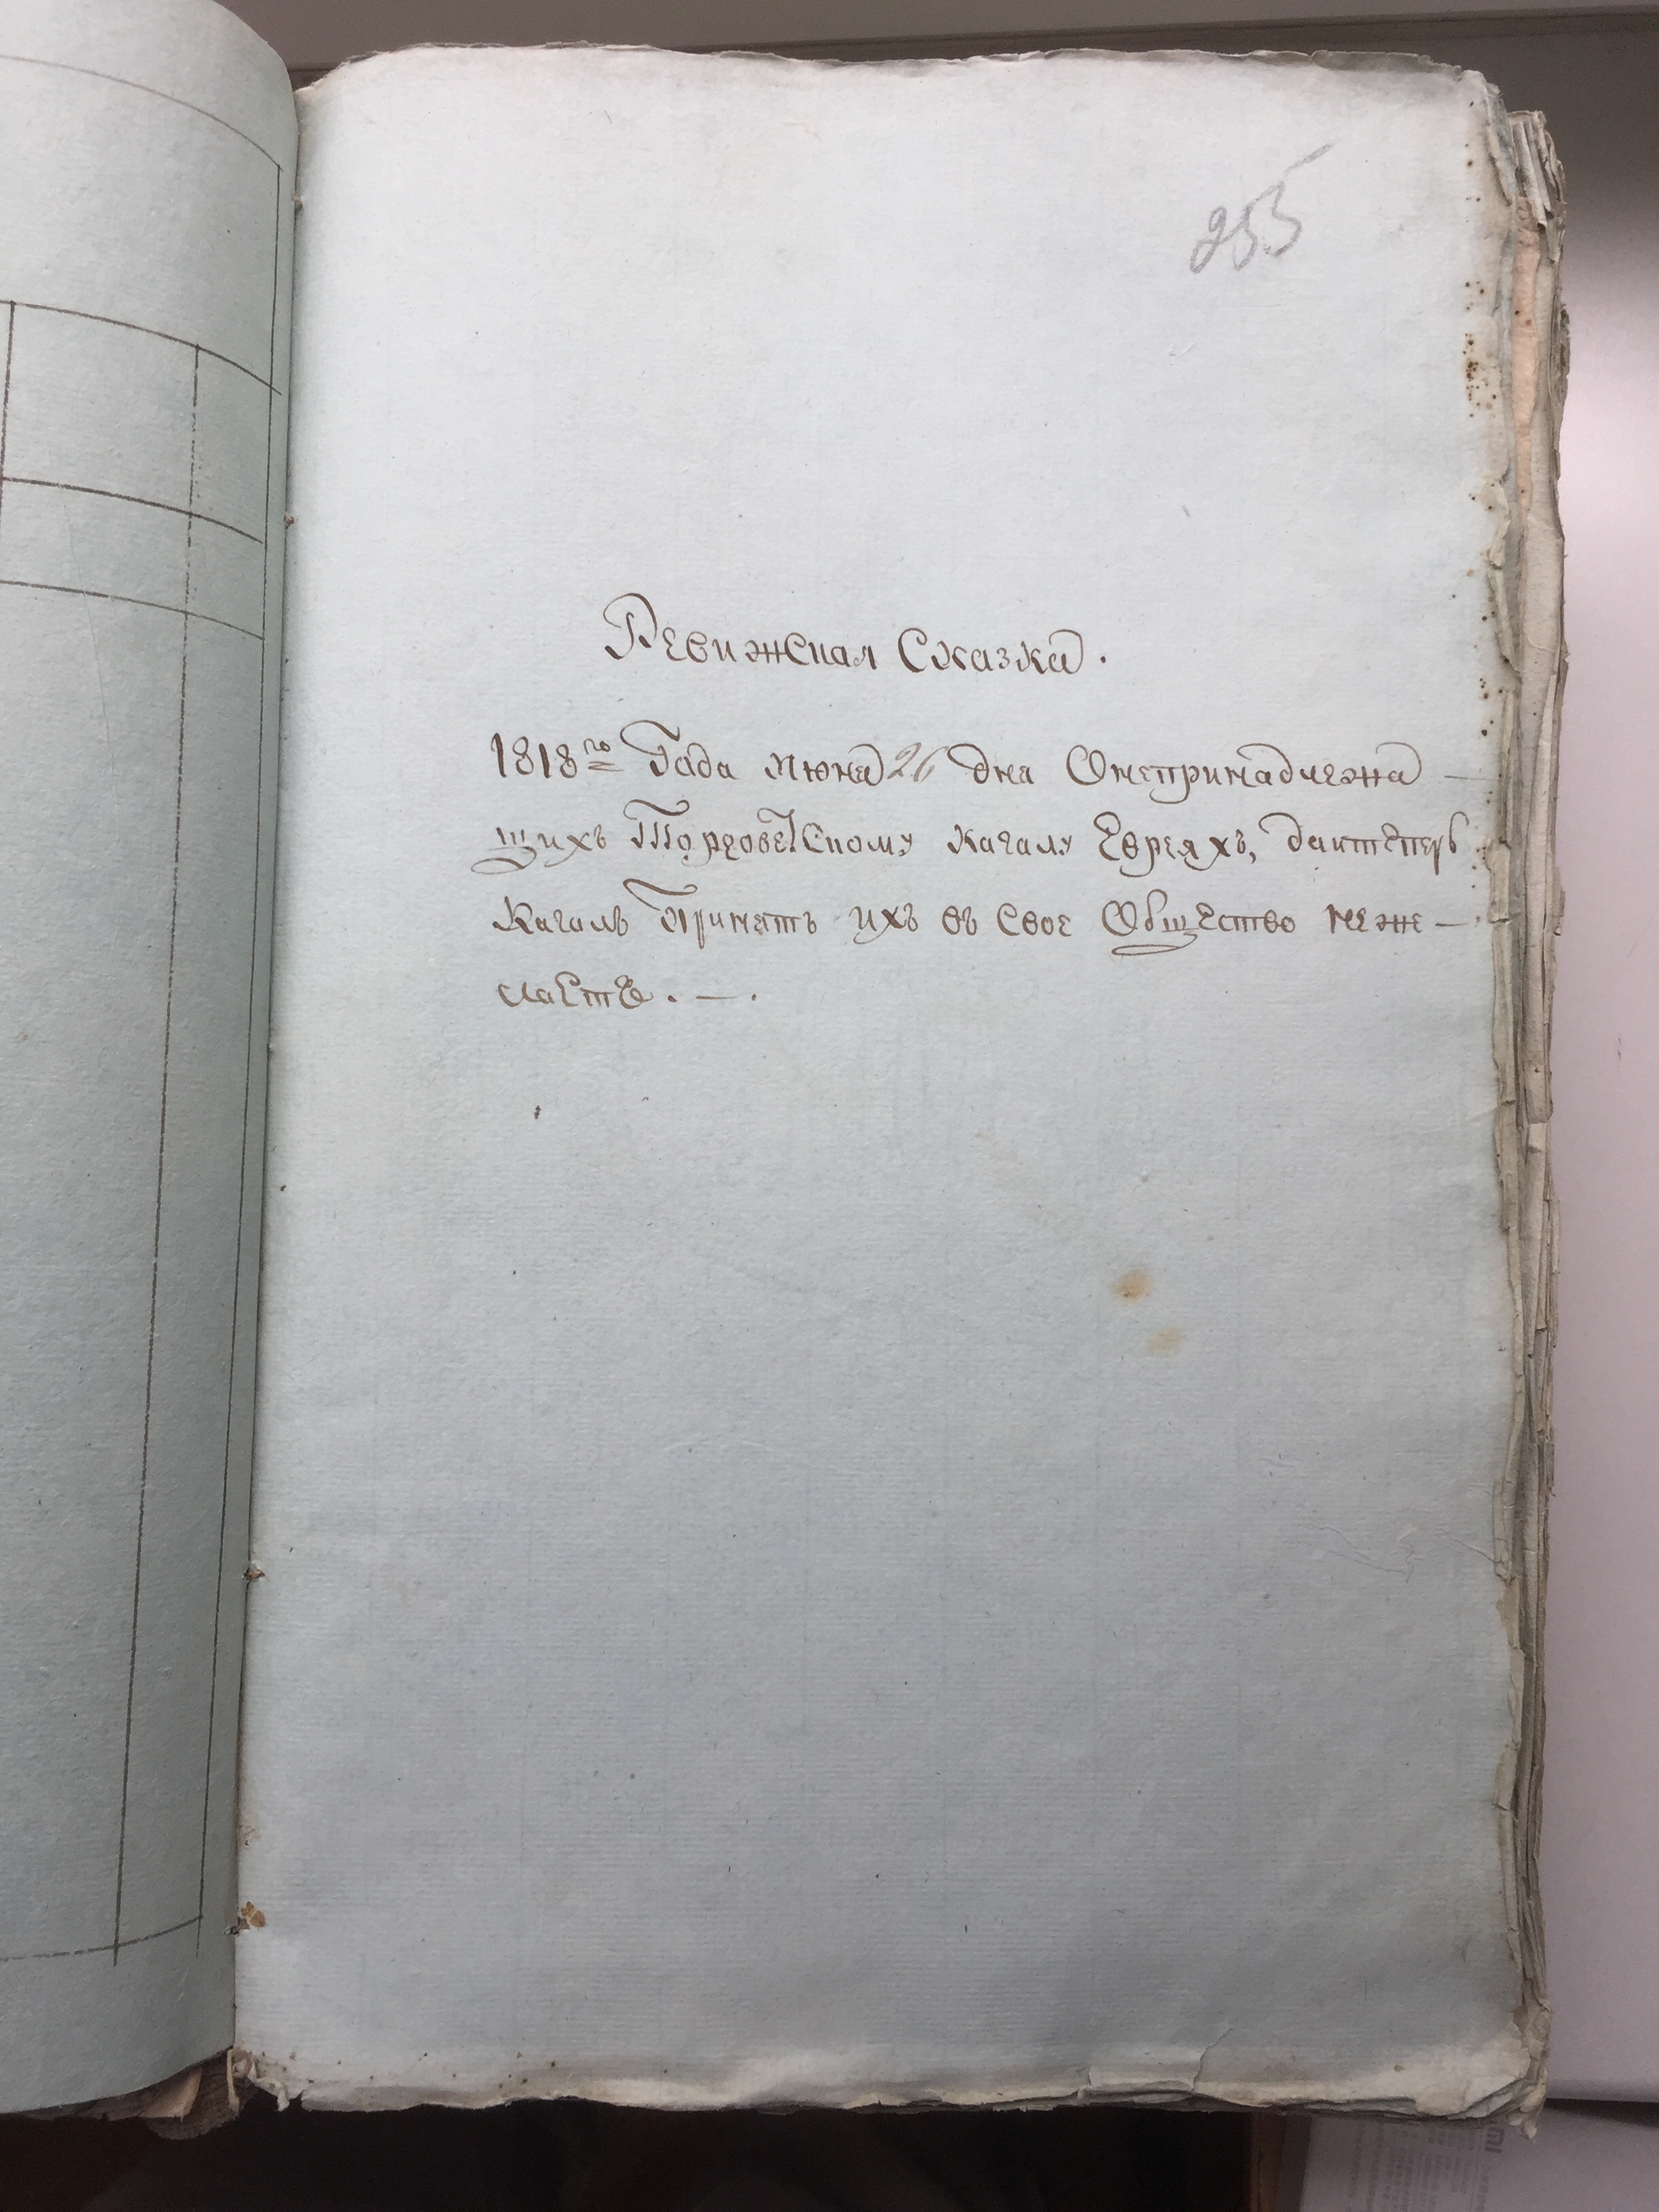 255
Ревижская Сказка.
1818го Года июня 26 дня Онепринадлежа
щихъ Торговецкому кагалу Евреяхъ, даитеперь
Кагалъ Принять ихъ въ Свое Общество неже
лаетъ. — .